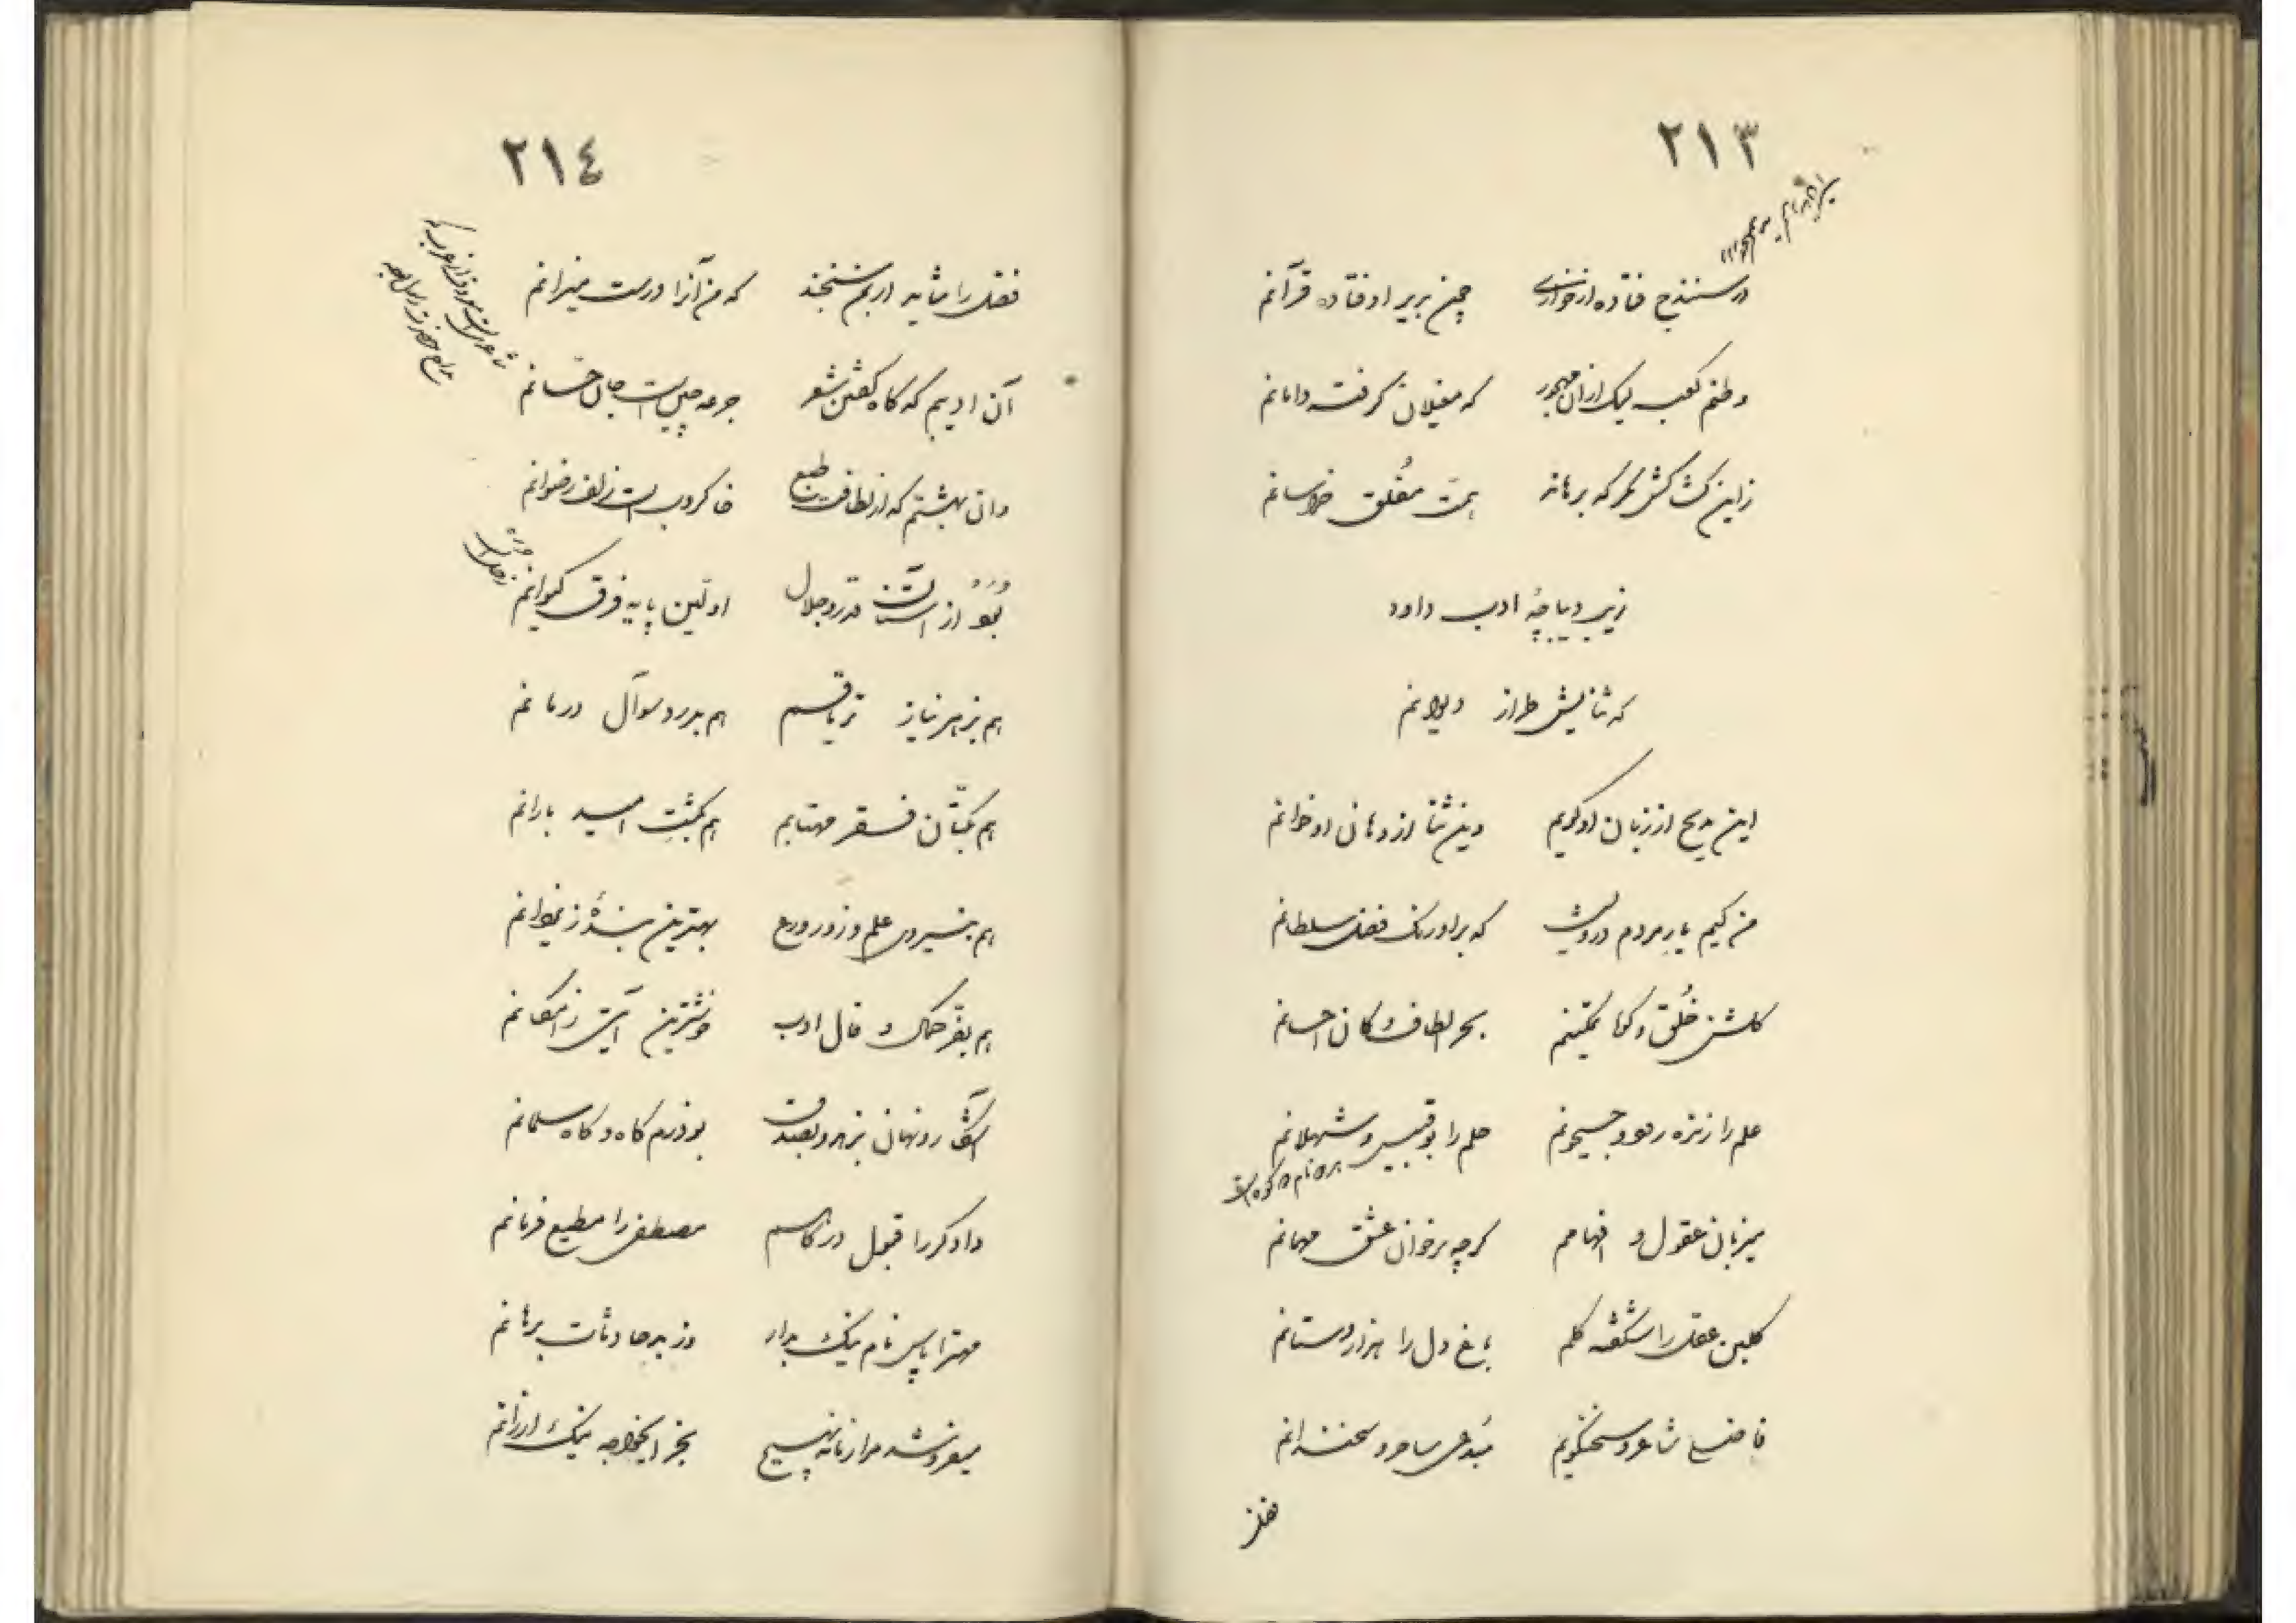 ٢١٣
در سنندج فتاده از خواری چمن بربر اوفتاده قرآنم
وطنم کعبه لیک از آن مهجور که مغیلان گرفت دامانم
زاین کشاکش مگر که برهاند همت مفلق خراسانم
زیب دیباچهٔ ادب داود
که ثنایش طراز دیوانم
این مدیح از زبان او گویم وین ثنا از دهان او خوانم
من کیم یار مردم درویش که بر اورنگ فضل سلطانم
گلشن خُلق و کوه تمکینم بحر الطاف و کان احسانم
علم را زنده رود و جیحونم حلم را بوقبیس و شهلانم
میزبان عقول و افهامم گرچه بر خوان عشق مهمانم
گلبن عقل را شکفته گلم باغ دل را هزاردستانم
فاضلی شاعر و سخنگویم مبدعی ساحر و سخندانم
فضل
٢١٤
فضل را مثابه ار بمن سنجند که من آنرا درست میزانم
آن ادیبم که گاه گفتن شعر جرعه چین است جان حسّانم
وان بهشتم که از لطافت طبع خاکروب است زلف رضوانم
بُوَد از آستان قدر و جلال اوّلین پایه فرق کیوانم
هم بزهر نیاز تریاقم هم بدرد سوآل درمانم
هم بکتّان فقر مهتابم هم بکشت امید بارانم
هم بنیروی علم و زور ورع بهترین بندهٔ ز یزدانم
هم بفر کمال و فال ادب خوشترین آیتی ز امکانم
آشکار و نهان بزهد و بصدق بوذرم گاه و گاه سلمانم
دادگر را قبول درگاهم مصطفی را مطیع فرمانم
مهترا پاس نام نیک بدار وز بد حادثات برهانم
میفروشد مرا زمانه بهیچ بخر ایخواجه نیک ارزانم